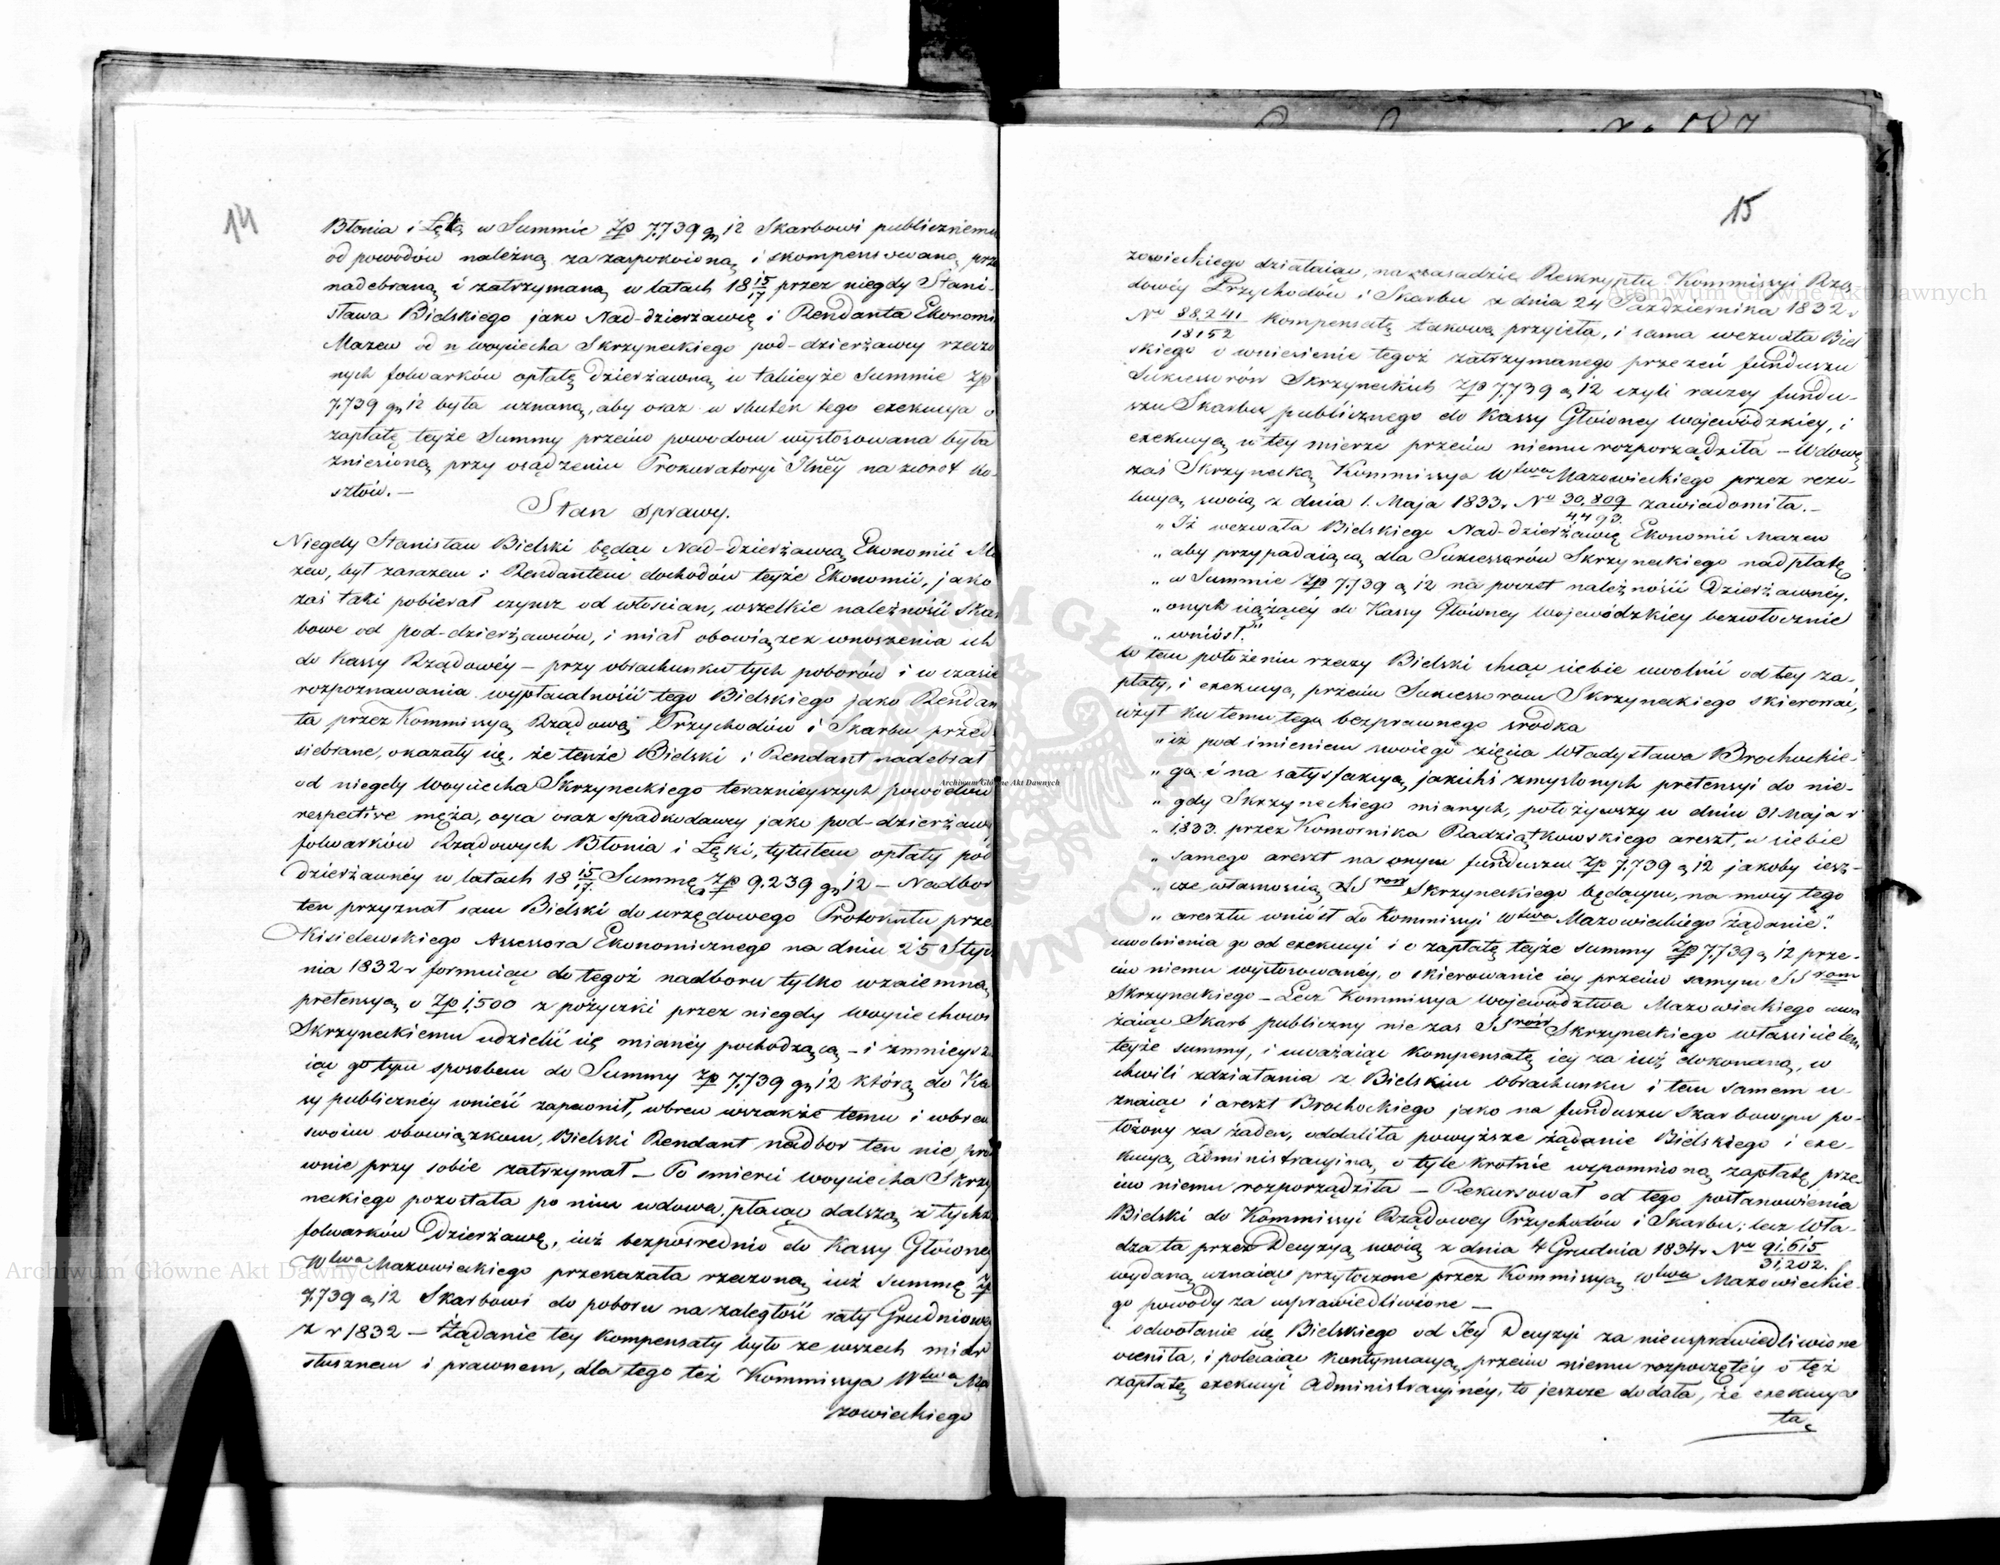 14
Błonia i Łęka w Summie Zp 7.739 gr 12 Skarbowi publicznemu
od powodów należną za zaspokoioną i skompensowaną prze
nadebraną i zatrzymaną w latach 18 15/17 przez niegdy Stani-
sława Bielskiego jako Nad-dzierżawcę i Rendanta Ekonomi
Mazew od n Woyciecha Skrzyneckiego pod-dzierżawcy rzeczo
nych folwarków opłatę dzierżawną w takieyże Summie Zp
7.739 gr 12 była uznaną, aby oraz w skutek tego exekucya o
zapłatę teyże Summy przeciw powodom wystosowana była
zniesioną przy osądzeniu Prokuratoryi Jlney na zwrot ko-
sztów.—
Stan sprawy.
Niegdy Stanisław Bielski będąc Nad-dzierżawcą Ekonomii Ma
zew, był zarazem i Rendantem dochodów teyże Ekonomii, jako
zaś taki pobierał czynsz od włościan, wszelkie należności Skar
bowe od pod-dzierżawców, i miał obowiązek wnoszenia ich
do Kassy Rządowéy — przy obrachunku tych poborów i w czasie
rozpoznawania wypłacalności tego Bielskiego jako Rendan
ta przez Kommissyą Rządową Przychodów i Skarbu przed
siebrane, okazały się, że tenże Bielski i Rendant nadebrał
od niegdy Woyciecha Skrzyneckiego teraznieyszych powodów
respective męża, oyca oraz spadkodawcy jako pod-dzierżawcy
folwarków Rządowych Błonia i Łęki, tytułem opłaty pod
dzierżawnéy w latach 18 15/17 Summę Zp 9.239 gr 12 — Nadbor
ten przyznał sam Bielski do urzędowego Protokułu prze
Kisielewskiego Assessora Ekonomicznego na dniu 25 Stycz
nia 1832 r formuiąc do tegoż nadboru tylko wzaiemną
pretensyą o Zp 1,500 z pożyczki przez niegdy Woyciechowi
Skrzyneckiemu udzielić się mianéy pochodzącą — i zmnieysza
iąc go tym sposobem do Summy Zp 7.739 gr 12 którą do Ka
sy publicznéy wnieść zapewnił, wbrew wszakże temu i wbrew
swoim obowiązkom, Bielski Rendant nadbor ten nie pra
wnie przy sobie zatrzymał — Po smierci Woyciecha Skrzy
neckiego pozostała po nim wdowa, płacąc dalszą z tychże
folwarków Dzierżawę, iuż bezpośrednio do Kassy Główney
Wtwa Mazowieckiego przekazała rzeczoną iuż Summę Zp
7.739 g 12 Skarbowi do poboru na zaległość raty Grudniowey
z r 1832 — Żądanie tey kompensaty było ze wszech miar
słusznem i prawnem, dla tego też Kommissya Wtwa Ma
zowieckiego
15
zowieckiego działaiąc, na zasadzie Reskryptu Kommissyi Rzą-
dowéy Przychodów i Skarbu z dnia 24 Października 1832 r
No 88,241/18152 Kompensatę takową przyięła, i sama wezwała Biel
skiego o wniesienie tegoż zatrzymanego przezeń funduszu
Sukcessorów Skrzyneckich Zp 7.739 g 12 czyli raczey fundu-
szu Skarbu publicznego do Kassy Głównéy Wojewódzkiey, i
exekucyą w tey mierze przeciw niemu rozporządziła — Wdowę
zaś Skrzynecką Kommissya Wtwa Mazowieckiego przez rezo-
lucyą swoią z dnia 1. Maja 1833 r No 30,809/4493 zawiadomiła.—
„ Iż wezwała Bielskiego Nad-dzierżawcę Ekonomii Mazew
„ aby przypadaiącą dla Sukcessorów Skrzyneckiego nadpłatę
„ w Summie Zp 7.739 g 12 na poczet należności Dzierżawnéy,
„ onych ciążącéy do Kassy Główney Wojewódzkiey bezwłocznie
„ wniósł."
W tem położeniu rzeczy Bielski chcąc siebie uwolnić od tey za-
płaty, i exekucyą przeciw Sukcessorom Skrzyneckiego skierować,
użył ku temu tego bezprawnego srodka
„ iż pod imieniem swoiego zięcia Władysława Brochockie-
„ go i na satysfakcyą jakichś zmyslonych pretensyi do nie-
„ gdy Skrzyneckiego mianych, położywszy w dniu 31 Maja r
„ 1833. przez Komornika Radziątkowskiego areszt, u siebie
„ samego areszt na onym funduszu Zp 7.739 g 12 jakoby iesz-
„ cze własnością SSrow Skrzyneckiego będącym, na mocy tego
„ aresztu wniósł do Kommissyi Wtwa Mazowieckiego żądanie."
uwolnienia go od exekucyi i o zapłatę teyże summy Zp 7.739 g 12 prze-
ciw niemu wystosowanéy, o skierowanie iey przeciw samym SSrom
Skrzyneckiego — Lecz Kommissya Województwa Mazowieckiego uwa
żaiąc Skarb publiczny nie zaś SSrów Skrzyneckiego właścicielem
teyże summy, i uważaiąc kompensatę iey za iuż dokonaną, w
chwili zdziałania z Bielskim obrachunku i tem samem u-
znaiąc i areszt Brochockiego jako na funduszu Skarbowym po-
łożony za żaden, oddaliła powyższe żądanie Bielskiego i exe-
kucyą Administracyiną o tyle krotnie wzpomnioną zapłatę prze
ciw niemu rozporządziła — Rekursował od tego postanowienia
Bielski do Kommissyi Rządowey Przychodów i Skarbu; lecz Wła-
dza ta przez Decyzyą swoią z dnia 4 Grudnia 1834 r No 91,615/31,202.
wydaną uznaiąc przytoczone przez Kommissyą Wtwa Mazowieckie-
go powody za usprawiedliwione —
odwołanie się Bielskiego od Jey Decyzyi za nieusprawiedliwione
oceniła, i polecaiąc kontynuacyą przeciw niemu rozpoczętey o tęż
zapłatę exekucyi Administracyinéy, to jeszcze dodała, że exekucya
ta
Archiwum Główne Akt Dawnych
Archiwum Główne Akt Dawnych
Archiwum Główne Akt Dawnych